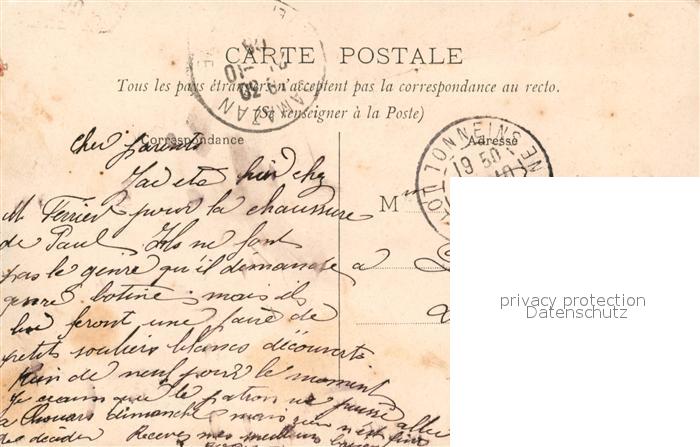 CARTE POSTALE
Tous les pays étrangers n'acceptent pas la correspondance au recto.
(Se renseigner à la Poste)
Correspondance
Adresse
DAMAZAN
TONNEINS
19 50
M
cher parents
Jai eté hier chez
M. Ferrier pour la chaussure
de Paul Ils ne font
pas le genre qu'il demande a
genre botine mais ils
lui feront une paire de
petits souliers blancs découverts
rien de neuf pour le moment
Je crains que le patron ne puisse aller
a Thouars dimanche mais rien n'est
décider Recevez mes meilleurs
privacy protection
Datenschutz